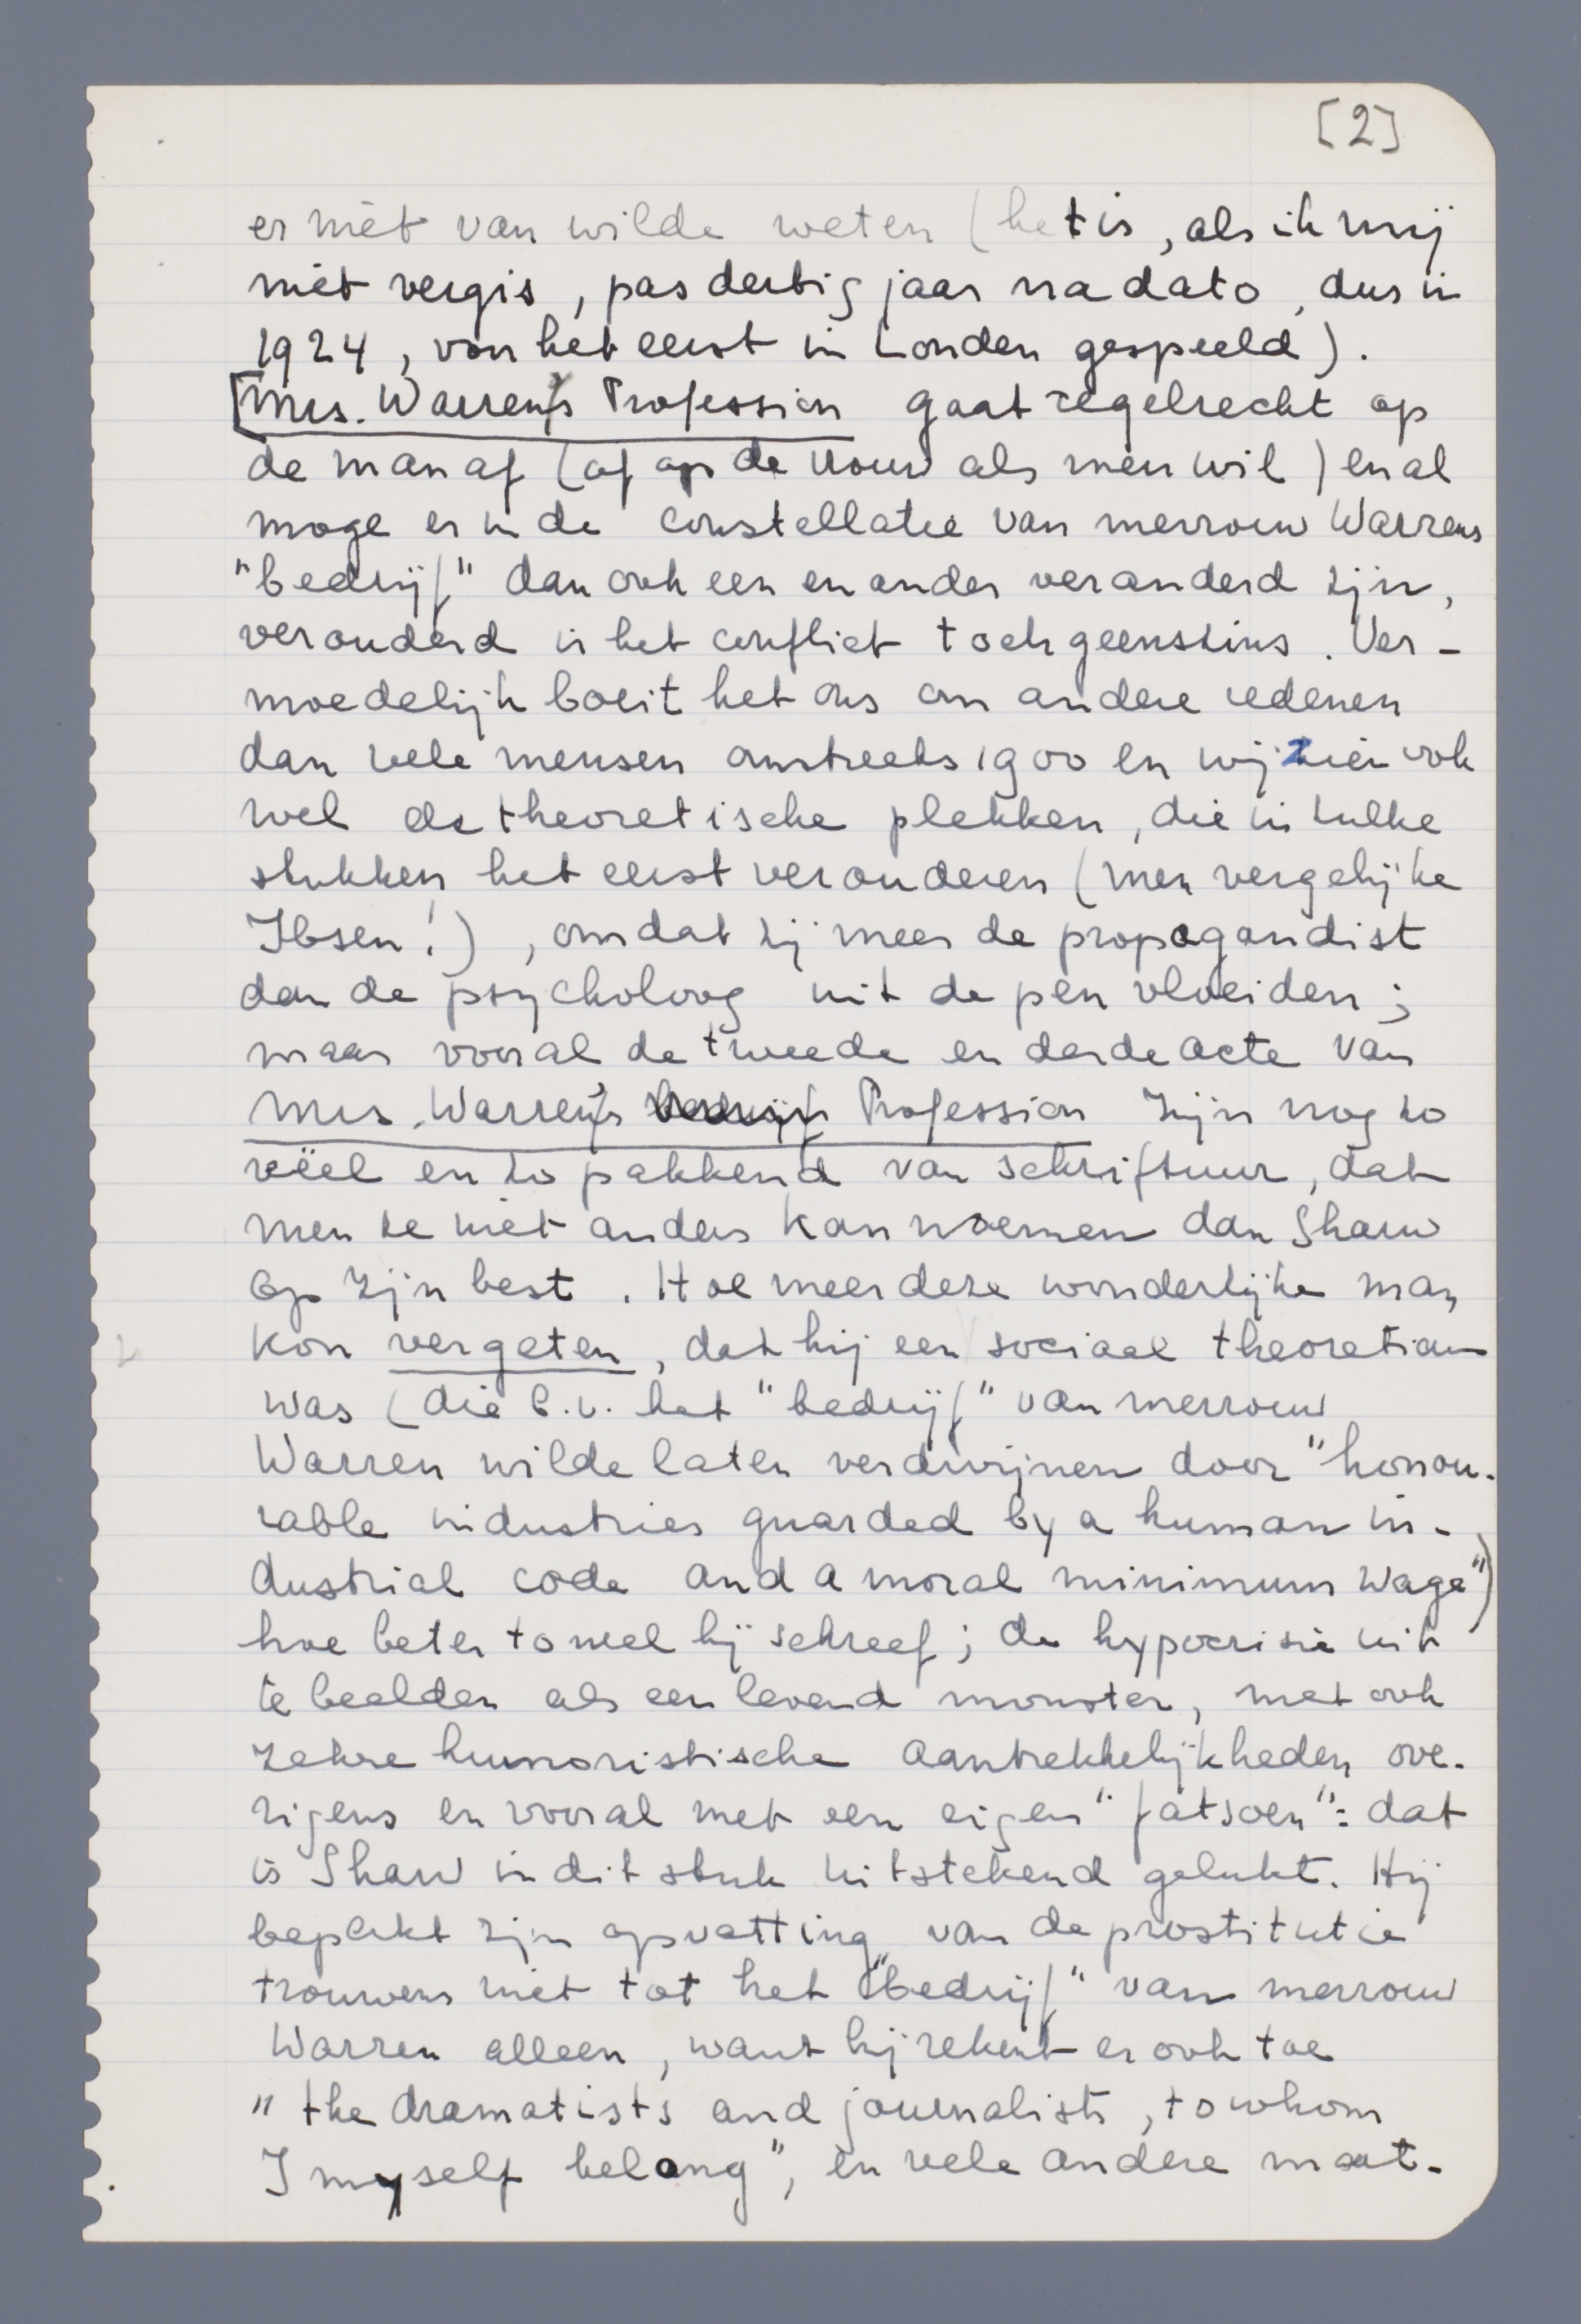 [2]
er niet van wilde weten (het is, als ik mij
niet vergis, pas dertig jaar na dato, dus in
1924, voor het eerst in Londen gespeeld).
[Mrs. Warren's Profession gaat regelrecht op
de man af (of op de vrouw als men wil) en al
moge er in de constellatie van mevrouw Warrens
"bedrijf" dan ook een en ander veranderd zijn,
verouderd is het conflict toch geenszins. Ver-
moedelijk boeit het ons om andere redenen
dan vele mensen omstreeks 1900 en wij zien ook
wel de theoretische plekken, die in zulke
stukken het eerst verouderen (men vergelijke
Ibsen!), omdat zij meer de propagandist
dan de psycholoog uit de pen vloeiden;
maar vooral de tweede en derde acte van
Mrs. Warren's bedrijf Profession zijn nog zo
reëel en zo pakkend van schriftuur, dat
men ze niet anders kan noemen dan Shaw
op zijn best. Hoe meer deze wonderlijke man
kon vergeten, dat hij een sociaal theoreticus
was (die b.v. het "bedrijf" van mevrouw
Warren wilde laten verdwijnen door "honou-
rable industries guarded by a human in-
dustrial code and a moral minimum wage")
hoe beter toneel hij schreef; de hypocrisie uit
te beelden als een levend monster, met ook
zekere humoristische aantrekkelijkheden ove-
rigens en vooral met een eigen "fatsoen": dat
is Shaw in dit stuk uitstekend gelukt. Hij
beperkt zijn opvatting van de prostitutie
trouwens niet tot het "bedrijf" van mevrouw
Warren alleen, want hij rekent er ook toe
"the dramatists and journalists, to whom
I myself belong", en vele andere maat-